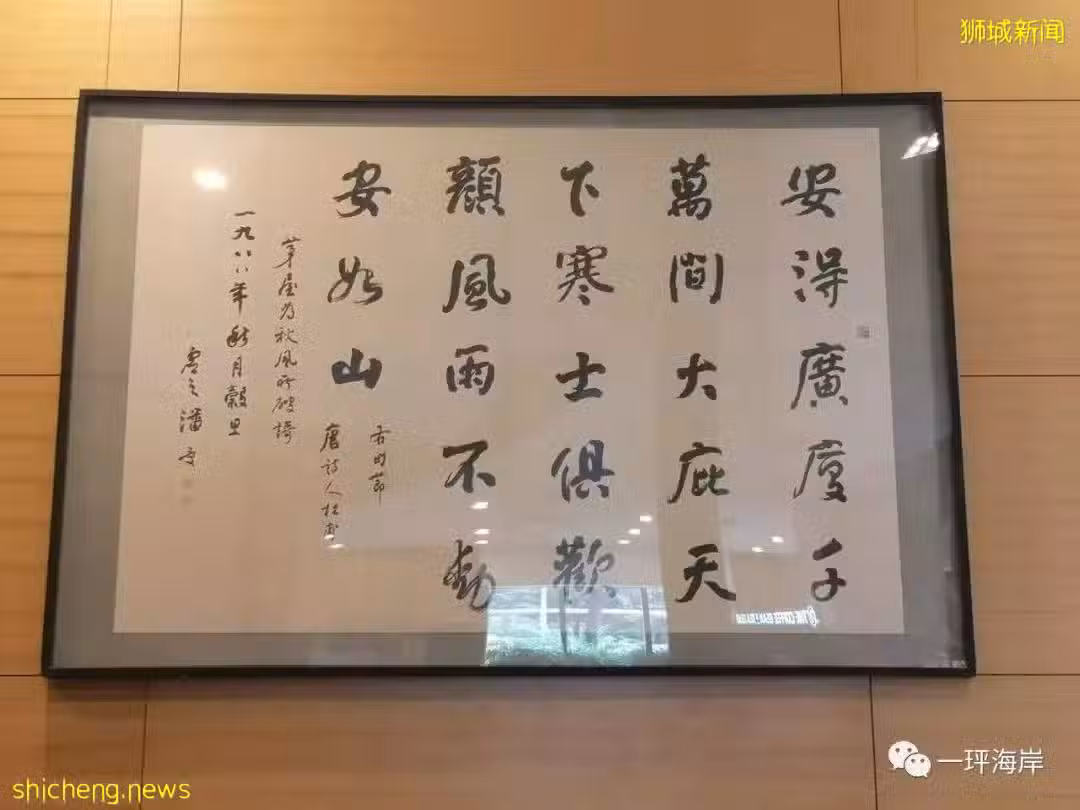 狮城新闻
安得廣厦千
萬間大庇天
下寒士俱歡
顏風雨不動
安如山
右时節
唐詩人杜甫
茅屋为秋風所破謌
一九八八年 月穀旦
虚之潘受
THE COFFEE BEAN & TEA LEAF
一坪海岸
shicheng.news